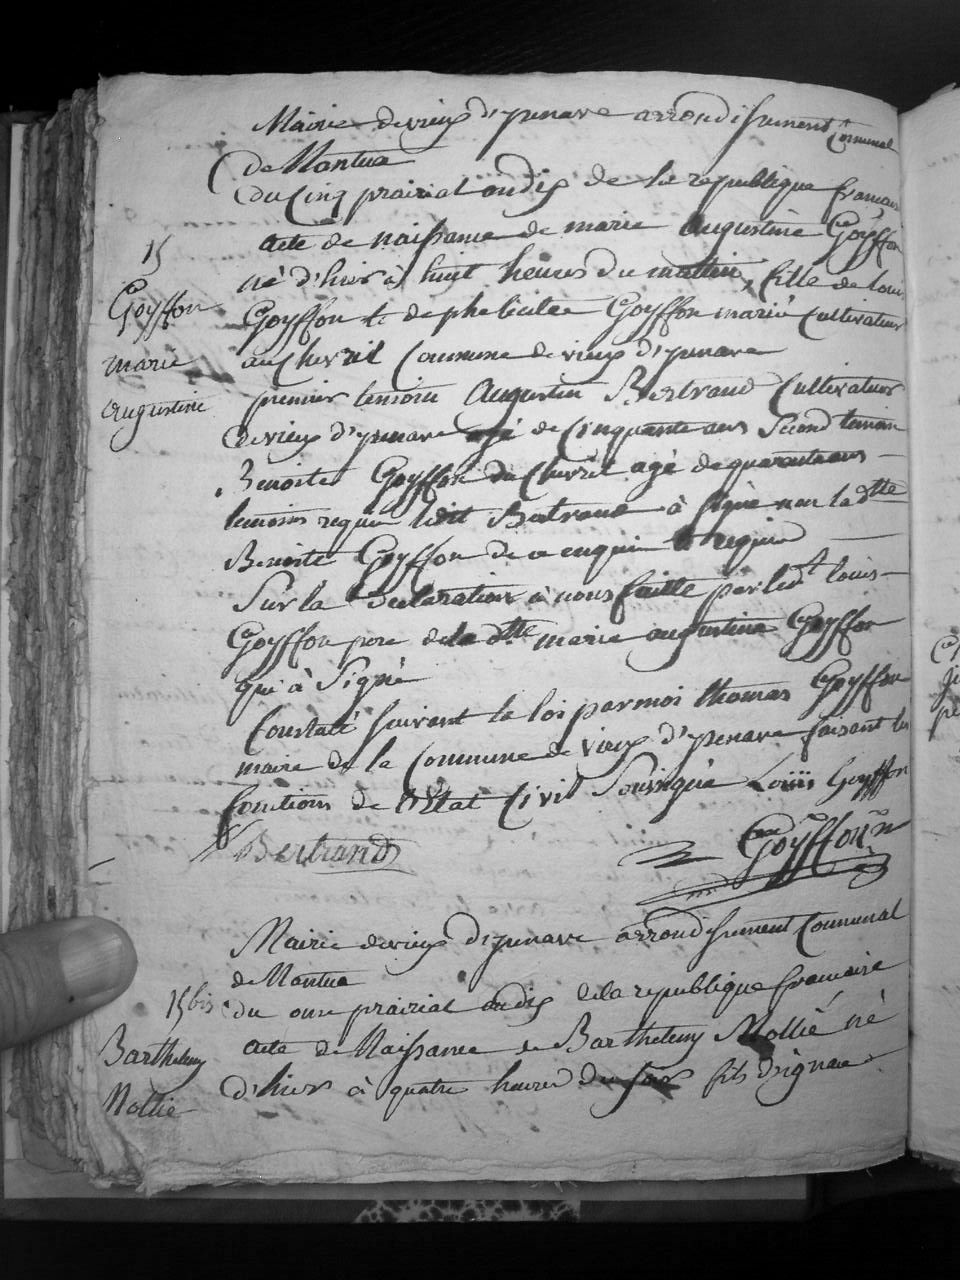 Mairie de vieux d'yzenave arrondissement Comunal
de Nantua
du Cinq prairial an dix de la republique francaise
15
Acte de naissance de marie Augustine Goyffon
né d'hier à huit heures du mattin, fille de Louis
Goyffon
Goyffon & de phelicitee Goyffon mariè Cultivateur
marie
au Chevril Commune de vieux d'yzenave
Augustine
premier temoin Augustin Bertrand Cultivateur
de vieux d'yzenave agé de Cinquante ans Second temoin
Benoite Goyffon du Chevril agé de quarante ans
temoins requis ledit Bertrand à signé non la dtte
Benoite Goyffon de ce enquie & requise
Sur la declaration à nous faitte par ledt louis
Goyffon pere de la dtte marie augustine Goyffon
qui à Signé
Constaté suivant la loi par moi thomas Goyffon
maire de la Commune de vieux d'yzenave faisant les
fonctions de l'Etat Civil Soussigné Louis Goyffon
Bertrand
Goyffon
Mairie de vieux d'yzenave arrondissement Communal
de Nantua
15 bis
du onze prairial an dix de la republique francaise
Barthelemy
Acte de Naissance de Barthelemy Mollié né
Mollié
d'hier à quatre heures du soir fils d'ignace